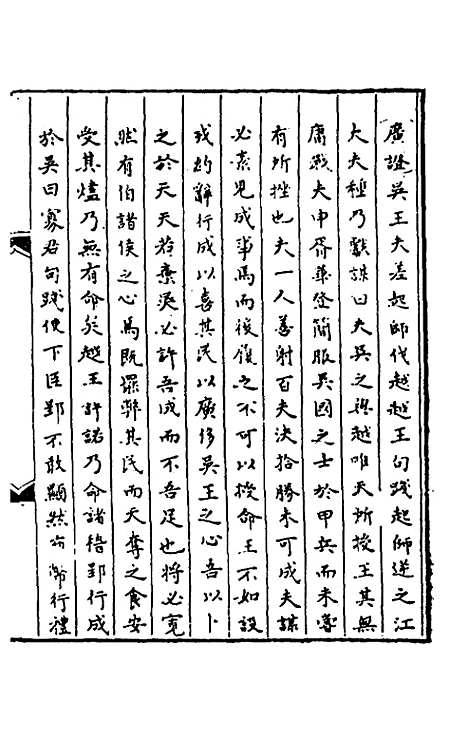 廣證吳王夫差起師伐越越王句踐起師逆之江
大夫種乃獻謀曰夫吳之與越唯天所授王其無
庸戰夫申胥華登簡服吳國之士於甲兵而未嘗
有所挫也夫一人善射百夫決拾勝未可成夫謀
必素見成事焉而後履之不可以授命王不如設
戎約辭行成以喜其民以廣侈吳王之心吾以卜
之於天天若棄吳必許吾成而不吾足也將必寬
然有伯諸侯之心焉既罷弊其民而天奪之食安
受其燼乃無有命矣越王許諾乃命諸稽郢行成
於吳曰寡君句踐使下臣郢不敢顯然布幣行禮